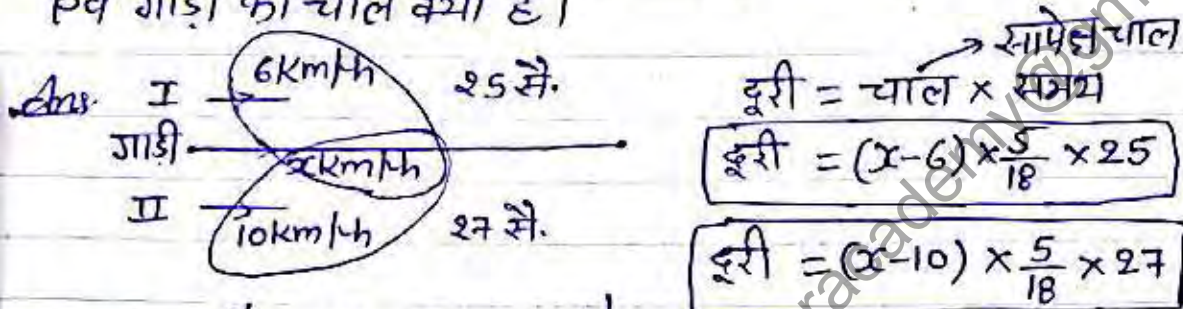 एवं गाड़ी की चाल क्या है।
Ans. I 6km/h 25 सै.
गाड़ी xkm/h
II 10km/h 27 सै.
सापेक्ष चाल
दूरी = चाल × समय
दूरी = (x-6) × 5/18 × 25
दूरी = (x-10) × 5/18 × 27